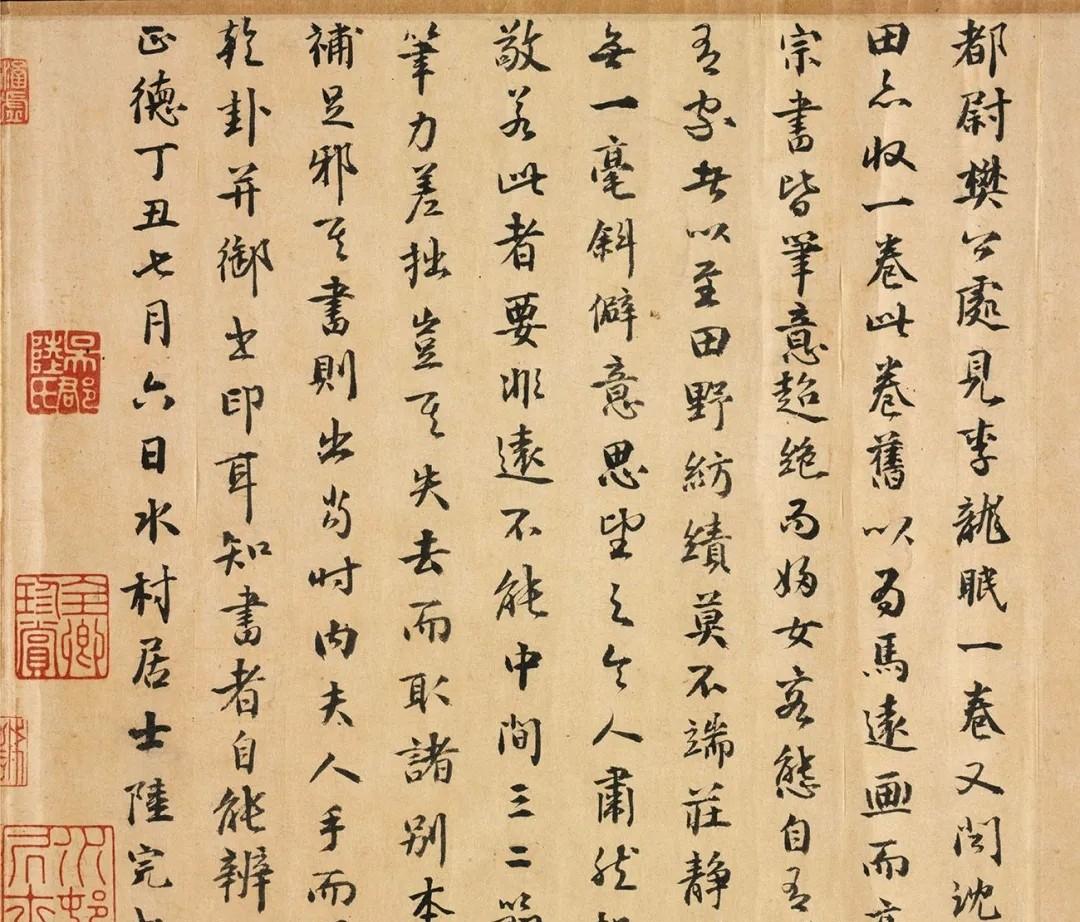 都尉樊公處見李龍眠一卷又聞沈
田亦收一卷此卷舊以為馬遠画而高
宗書皆筆意超絶而婦女容態自有
有家者以至田野紡績莫不端莊静
無一毫斜僻意思望之令人肅然
敬若此者要非遠不能中間三二
筆力差拙豈其失去而取諸别本
補足邪其書則出當時内夫人手而
乾卦并御書印耳知書者自能辨
正德丁丑七月六日水村居士陸完
吳郡陸氏
全卿珍賞